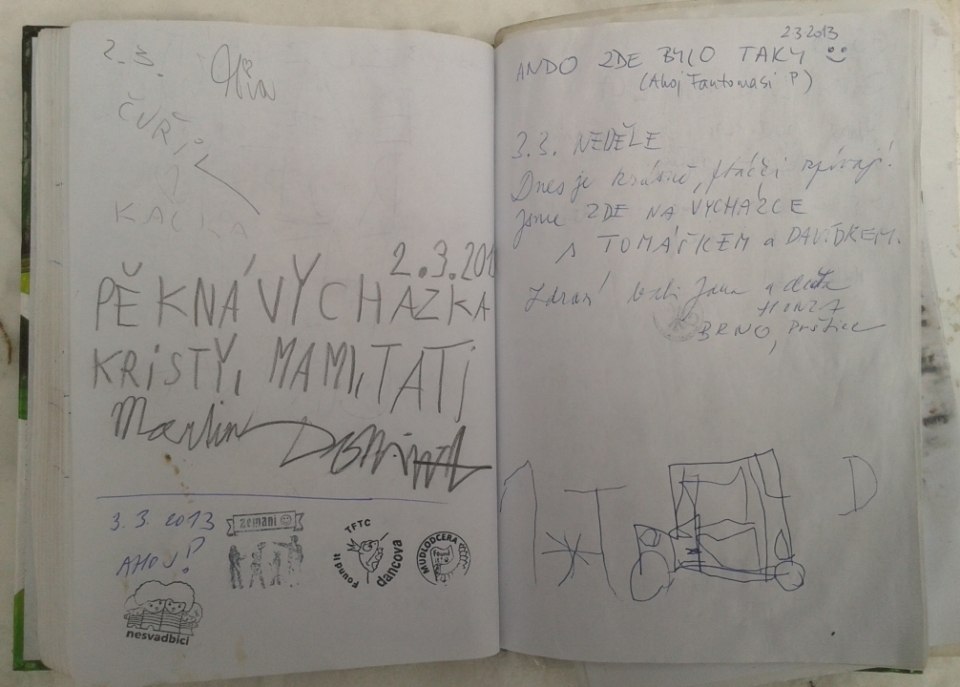 2.3.
ČUŘIL
KAČKA
2.3.201
PĚKNÁ VYCHÁZKA
KRISTY, MAMI, TATI
Martin Dominik
3.3.2013
AHOJ!
zemani
TFTC
Found it
dancova
MUDLODCERA
nesvadbici
2.3.2013
ANDO ZDE BYLO TAKY
(Ahoj Fantomasi P)
3.3. NEDĚLE
Dnes je krásně, ptáčci zpívají!
Jsme ZDE NA VYCHÁZCE
s TOMÁŠKEM a DAVIDKEM.
Zdraví babi Jana a děda
HONZA
BRNO,
D